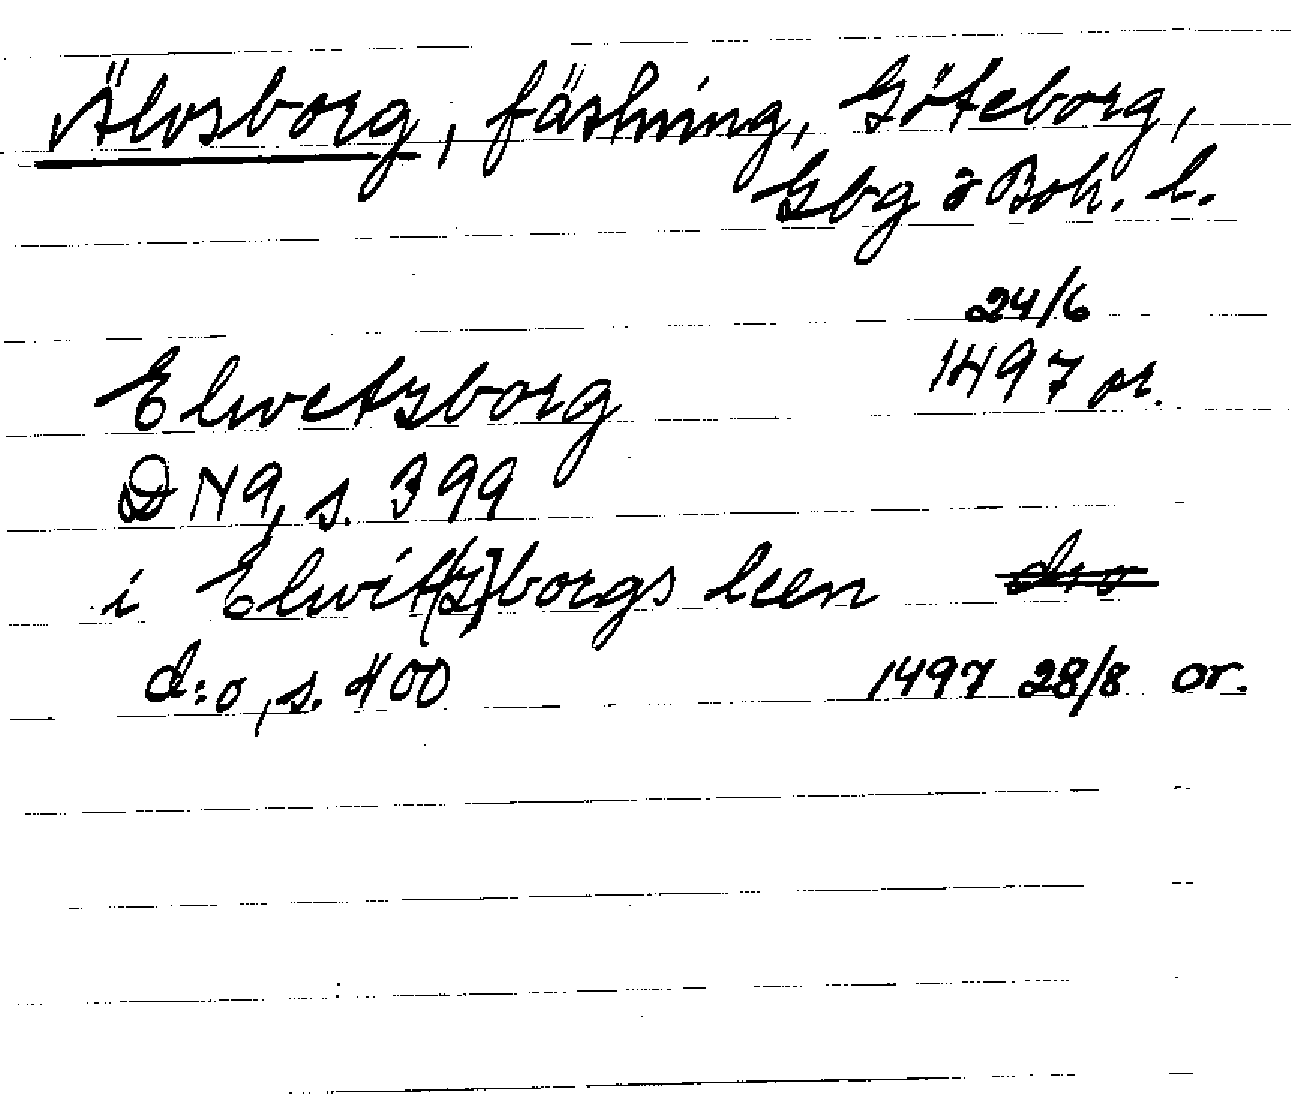 Älvsborg, fästning, Göteborg,
Gbg o Boh. l.
24/6
Elwetzborg 1497 or.
DN 9, s. 399
i Elwit(z)borgs leen d:o
d:o, s. 400 1497 28/8 or.